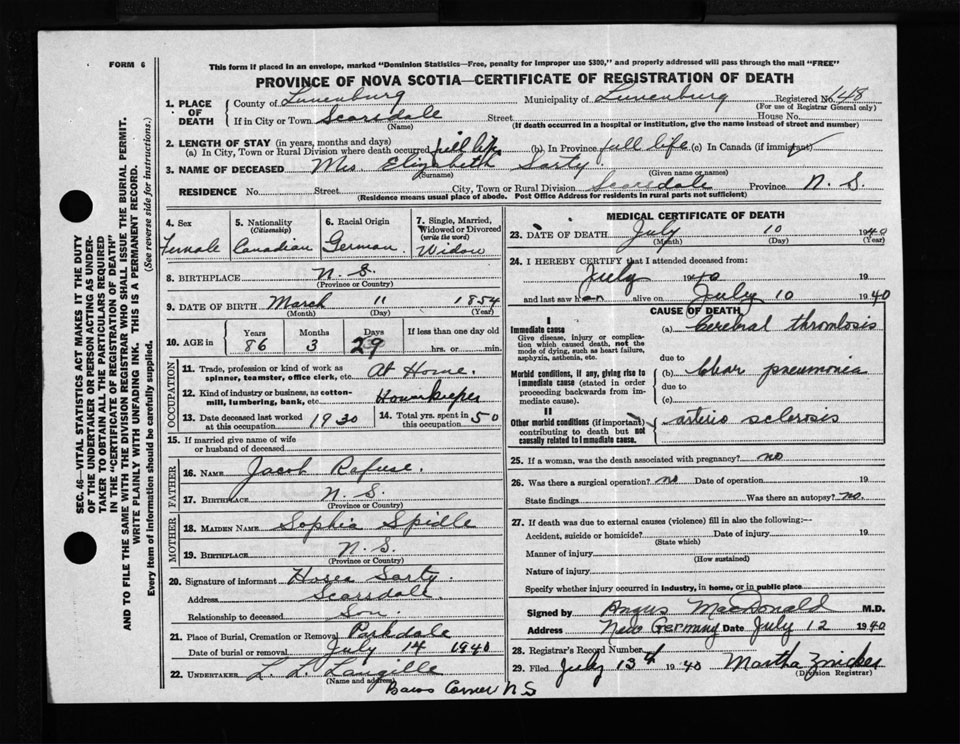 FORM 6
This form if placed in an envelope, marked "Dominion Statistics—Free, penalty for improper use $300," and properly addressed will pass through the mail "FREE"
PROVINCE OF NOVA SCOTIA—CERTIFICATE OF REGISTRATION OF DEATH
1. PLACE OF DEATH County of Lunenburg Municipality of Lunenburg Registered No. 148
(For use of Registrar General only)
If in City or Town Scarsdale Street House No.
(Name) (If death occurred in a hospital or institution, give the name instead of street and number)
2. LENGTH OF STAY (in years, months and days)
(a) In City, Town or Rural Division where death occurred full life (b) In Province full life (c) In Canada (if immigrant)
3. NAME OF DECEASED Mrs Elizabeth Sarty
(Surname) (Given name or names)
RESIDENCE No. Street City, Town or Rural Division Scarsdale Province N. S.
(Residence means usual place of abode. Post Office Address for residents in rural parts not sufficient)
4. Sex Female
5. Nationality (Citizenship) Canadian
6. Racial Origin German
7. Single, Married, Widowed or Divorced (write the word) Widow
8. BIRTHPLACE N. S.
(Province or Country)
9. DATE OF BIRTH March 11 1854
(Month) (Day) (Year)
10. AGE in Years 86 Months 3 Days 29 If less than one day old hrs. or min.
OCCUPATION
11. Trade, profession or kind of work as spinner, teamster, office clerk, etc. At Home.
12. Kind of industry or business, as cotton-mill, lumbering, bank, etc. Housekeeper
13. Date deceased last worked at this occupation 1930
14. Total yrs. spent in this occupation 50
15. If married give name of wife or husband of deceased
FATHER
16. NAME Jacob Rafuse.
17. BIRTHPLACE N. S.
(Province or Country)
MOTHER
18. MAIDEN NAME Sophia Spidle
19. BIRTHPLACE N. S.
(Province or Country)
20. Signature of informant Hosea Sarty.
Address Scarsdale.
Relationship to deceased Son.
21. Place of Burial, Cremation or Removal Parkdale
Date of burial or removal July 14 1940
22. UNDERTAKER L. L. Langille
(Name and address)
Corner N S
MEDICAL CERTIFICATE OF DEATH
23. DATE OF DEATH July 10 1940
(Month) (Day) (Year)
24. I HEREBY CERTIFY that I attended deceased from:
July 1940 19
and last saw her alive on July 10 1940
CAUSE OF DEATH
I
Immediate cause (a) Cerebral thrombosis
Give disease, injury or complication which caused death, not the mode of dying, such as heart failure, asphyxia, asthenia, etc.
due to
Morbid conditions, if any, giving rise to immediate cause (stated in order proceeding backwards from immediate cause).
(b) lobar pneumonia
due to
(c)
II
Other morbid conditions (if important) contributing to death but not causally related to immediate cause. arterio sclerosis
25. If a woman, was the death associated with pregnancy? no
26. Was there a surgical operation? no Date of operation 19
State findings Was there an autopsy? no.
27. If death was due to external causes (violence) fill in also the following:—
Accident, suicide or homicide? Date of injury 19
(State which)
Manner of injury
(How sustained)
Nature of injury
Specify whether injury occurred in industry, in home, or in public place
Signed by Angus MacDonald M.D.
Address New Germany Date July 12 1940
28. Registrar's Record Number
29. Filed July 13th 1940 Martha Zwicker
(Division Registrar)
SEC. 46—VITAL STATISTICS ACT MAKES IT THE DUTY
OF THE UNDERTAKER OR PERSON ACTING AS UNDER-
TAKER TO OBTAIN ALL THE PARTICULARS REQUIRED
IN THE "CERTIFICATE OF REGISTRATION OF DEATH"
AND TO FILE THE SAME WITH THE DIVISION REGISTRAR WHO SHALL ISSUE THE BURIAL PERMIT.
WRITE PLAINLY WITH UNFADING INK. THIS IS A PERMANENT RECORD.
Every item of information should be carefully supplied. (See reverse side for instructions.)